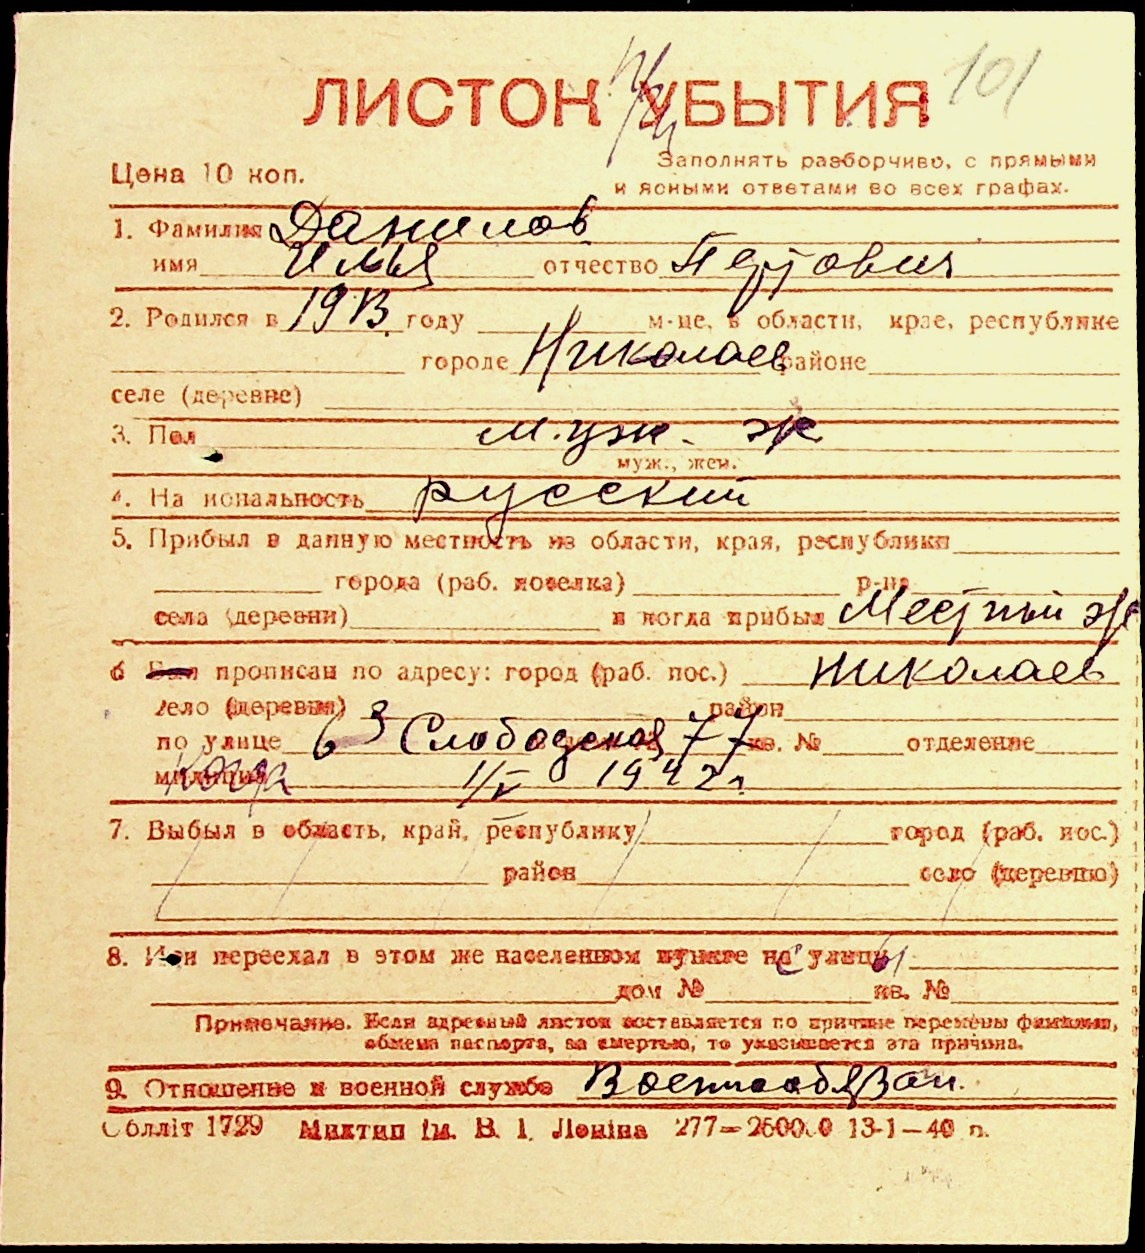 101
ЛИСТОК УБЫТИЯ
Цена 10 коп.
Заполнять разборчиво, с прямыми
и ясными ответами во всех графах.
1. Фамилия Данилов
имя Илья отчество Петрович
2. Родился в 1913 году м-це, в области, крае, республике
городе Николаев районе
селе (деревне)
3. Пол муж. ж
муж., жен.
4. Национальность русский
5. Прибыл в данную местность из области, края, республики
города (раб. поселка) р-на
села (деревни) и когда прибыл Местный ж
6 Был прописан по адресу: город (раб. пос.) Николаев
село (деревня) район
по улице 63 Слободская 77 кв. № отделение
милиции Когда 1/V 1942 г.
7. Выбыл в область, край, республику город (раб. пос.)
район село (деревню)
8. Или переехал в этом же населенном пункте на улицы
дом № кв. №
Примечание. Если адресный листок составляется по причине перемены фамилии,
обмена паспорта, за смертью, то указывается эта причина.
9. Отношение к военной службе Военнообязан.
Облліт 1729 Миктип ім. В. І. Леніна 277—260000 13-1—40 п.